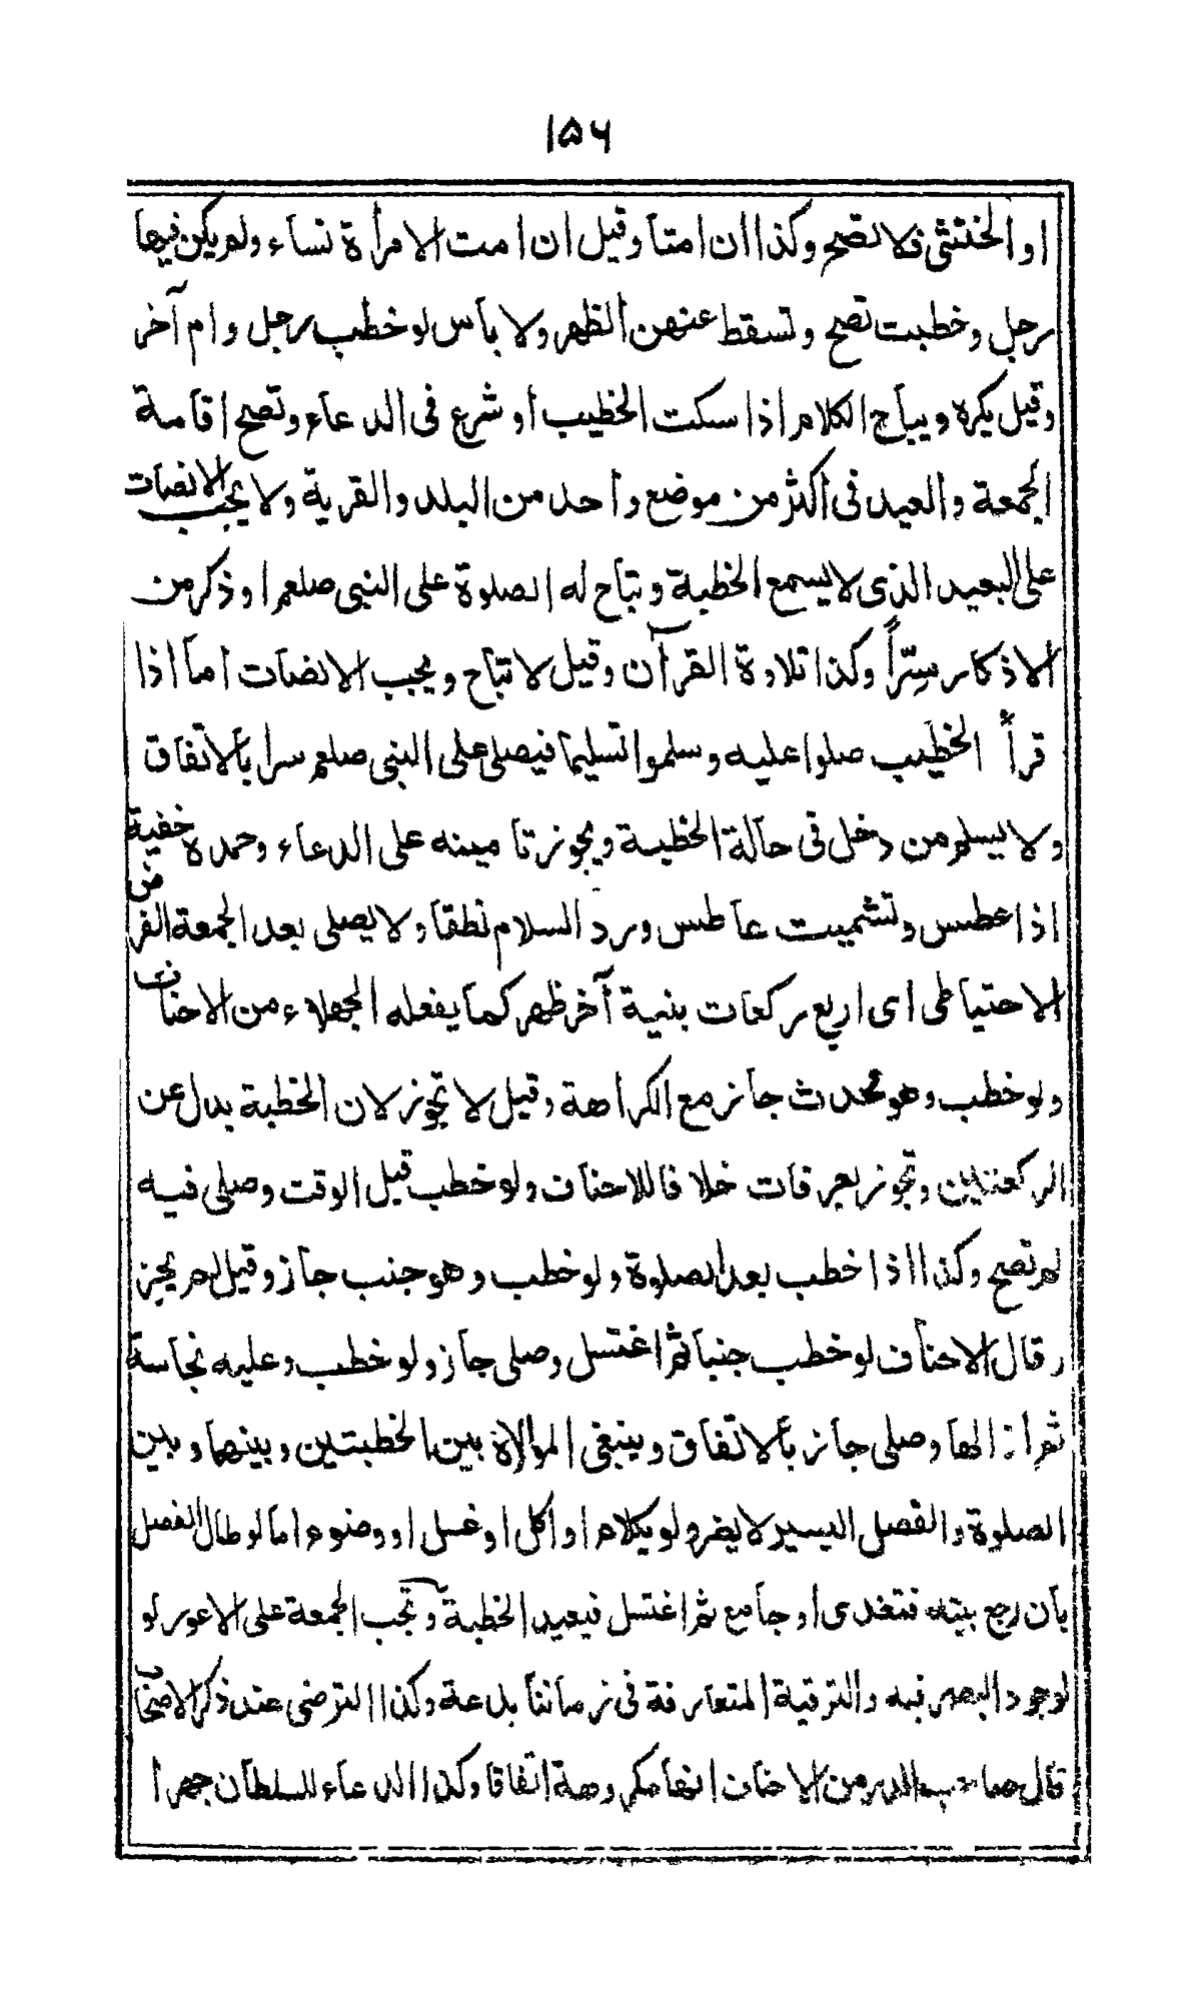 ١٥٦
او الخنثى فلا تصح وكذا ان امتا وقيل ان امت الامرأة نساء ولم يكن فيها
رجل وخطبت تصح وتسقط عنهن الظهر ولا بأس لو خطب رجل وام آخر
وقيل يكره ويباح الكلام اذا سكت الخطيب او شرع فى الدعاء وتصح اقامة
الجمعة والعيد فى اكثر من موضع واحد من البلد والقرية ولا يجب الانصات
على البعيد الذى لا يسمع الخطبة وتباح له الصلوة على النبى صلعم او ذكر من
الاذكار سِرّاً وكذا تلاوة القرآن وقيل لا تباح ويجب الانصات اما اذا
قرأ الخطيب صلوا عليه وسلموا تسليما فيصلى على النبى صلعم سرا بالاتفاق
ولا يسلم من دخل فى حالة الخطبة ويجوز تامينه على الدعاء وحمده خفية
اذا عطس وتشميت عاطس ورد السلام نطقا ولا يصلى بعد الجمعة الفرض
الاحتياطى اى اربع ركعات بنية آخر ظهر كما يفعله الجهلاء من الاحناف
ولو خطب وهو محدث جاز مع الكراهة وقيل لا تجوز لان الخطبة بدل عن
الركعتين وتجوز بعرفات خلافا للاحناف ولو خطب قبل الوقت وصلى فيه
لم تصح وكذا اذا خطب بعد الصلوة ولو خطب وهو جنب جاز وقيل لم يجز
وقال الاحناف لو خطب جنبا ثم اغتسل وصلى جاز ولو خطب وعليه نجاسة
ثم ازالها وصلى جاز بالاتفاق وينبغى الموالاة بين الخطبتين وبينهما وبين
الصلوة والفصل اليسير لا يضر ولو بكلام او اكل او غسل او وضوء اما لو طال الفصل
بان رجع بيته فتغدى او جامع ثم اغتسل فيعيد الخطبة وتجب الجمعة على الاعور لو
لوجود البصر فيه والترقية المتعارفة فى زماننا بدعة وكذا الترضى عند ذكر الاصحاب
قال صاحب الدر من الاحناف انها مكروهة اتفاقا وكذا الدعاء للسلطان جهرا